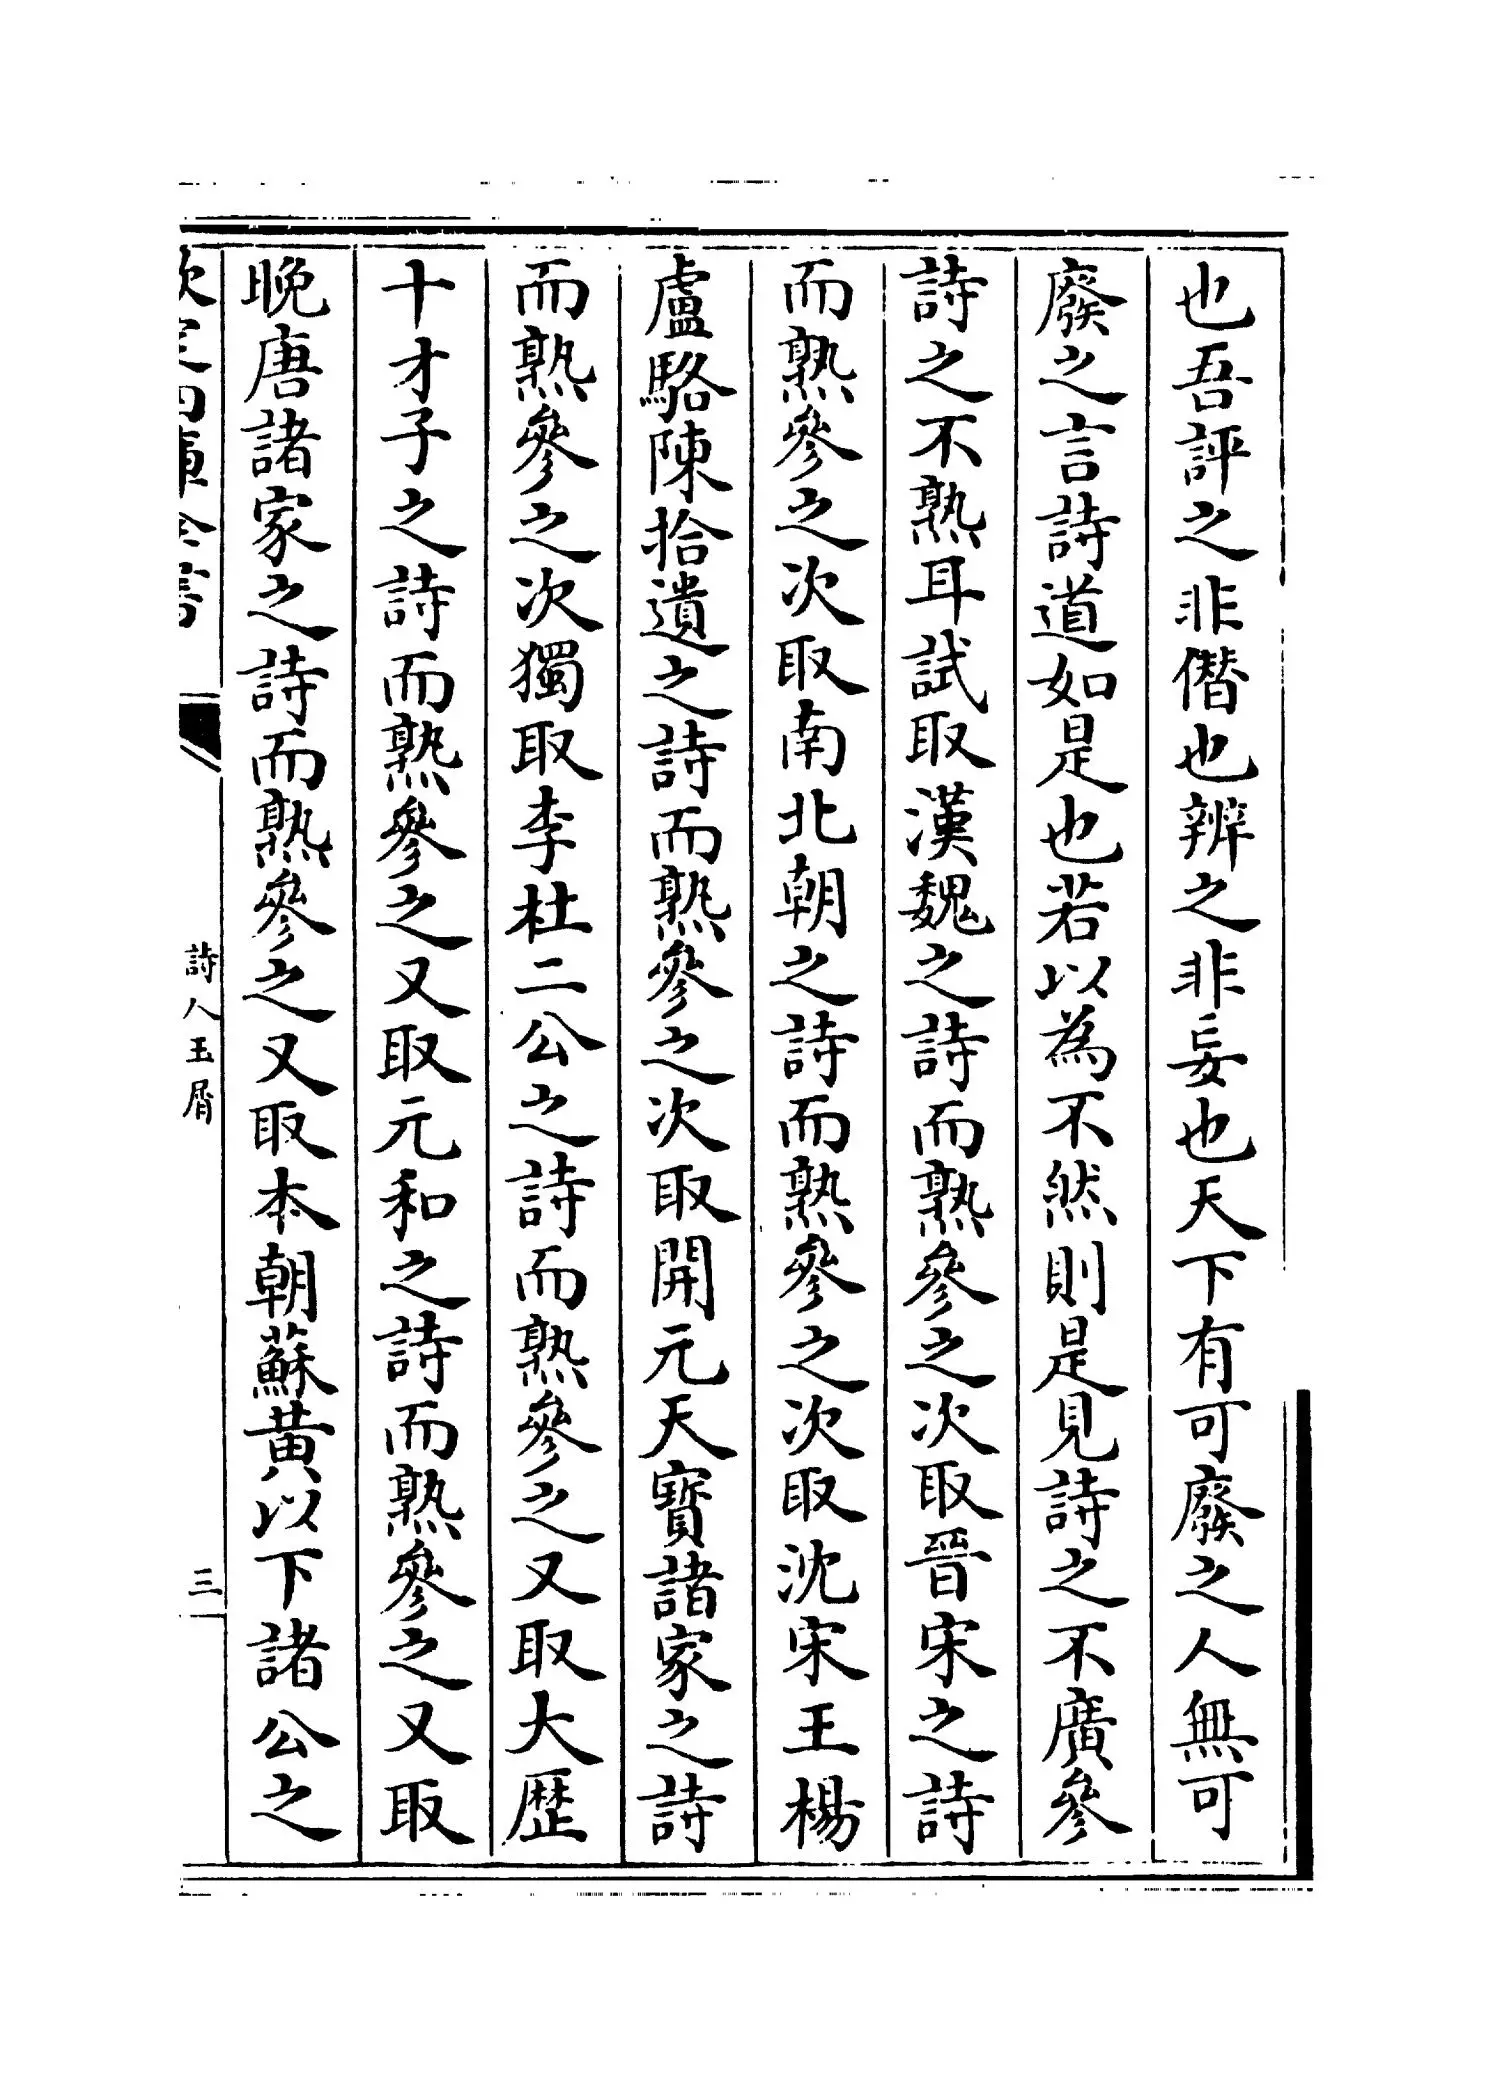 也吾評之非僭也辨之非妄也天下有可廢之人無可
廢之言詩道如是也若以為不然則是見詩之不廣參
詩之不熟耳試取漢魏之詩而熟參之次取晉宋之詩
而熟參之次取南北朝之詩而熟參之次取沈宋王楊
盧駱陳拾遺之詩而熟參之次取開元天寶諸家之詩
而熟參之次獨取李杜二公之詩而熟參之又取大歷
十才子之詩而熟參之又取元和之詩而熟參之又取
晚唐諸家之詩而熟參之又取本朝蘇黄以下諸公之
欽定四庫全書
詩人玉屑
三